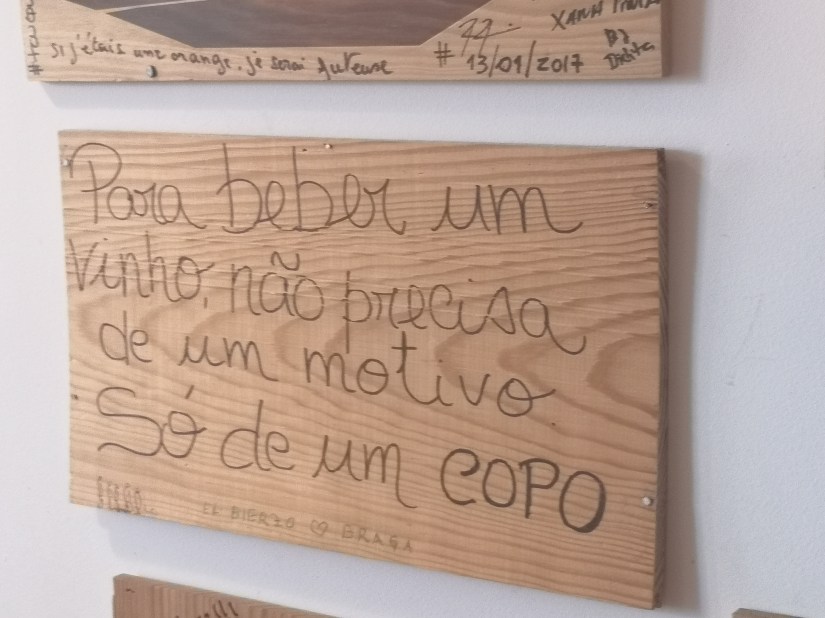 si j'étais une orange, je serai
# 13/01/2017
By
Para beber um
vinho, não precisa
de um motivo
Só de um COPO
EL BIERZO ♡ BRAGA